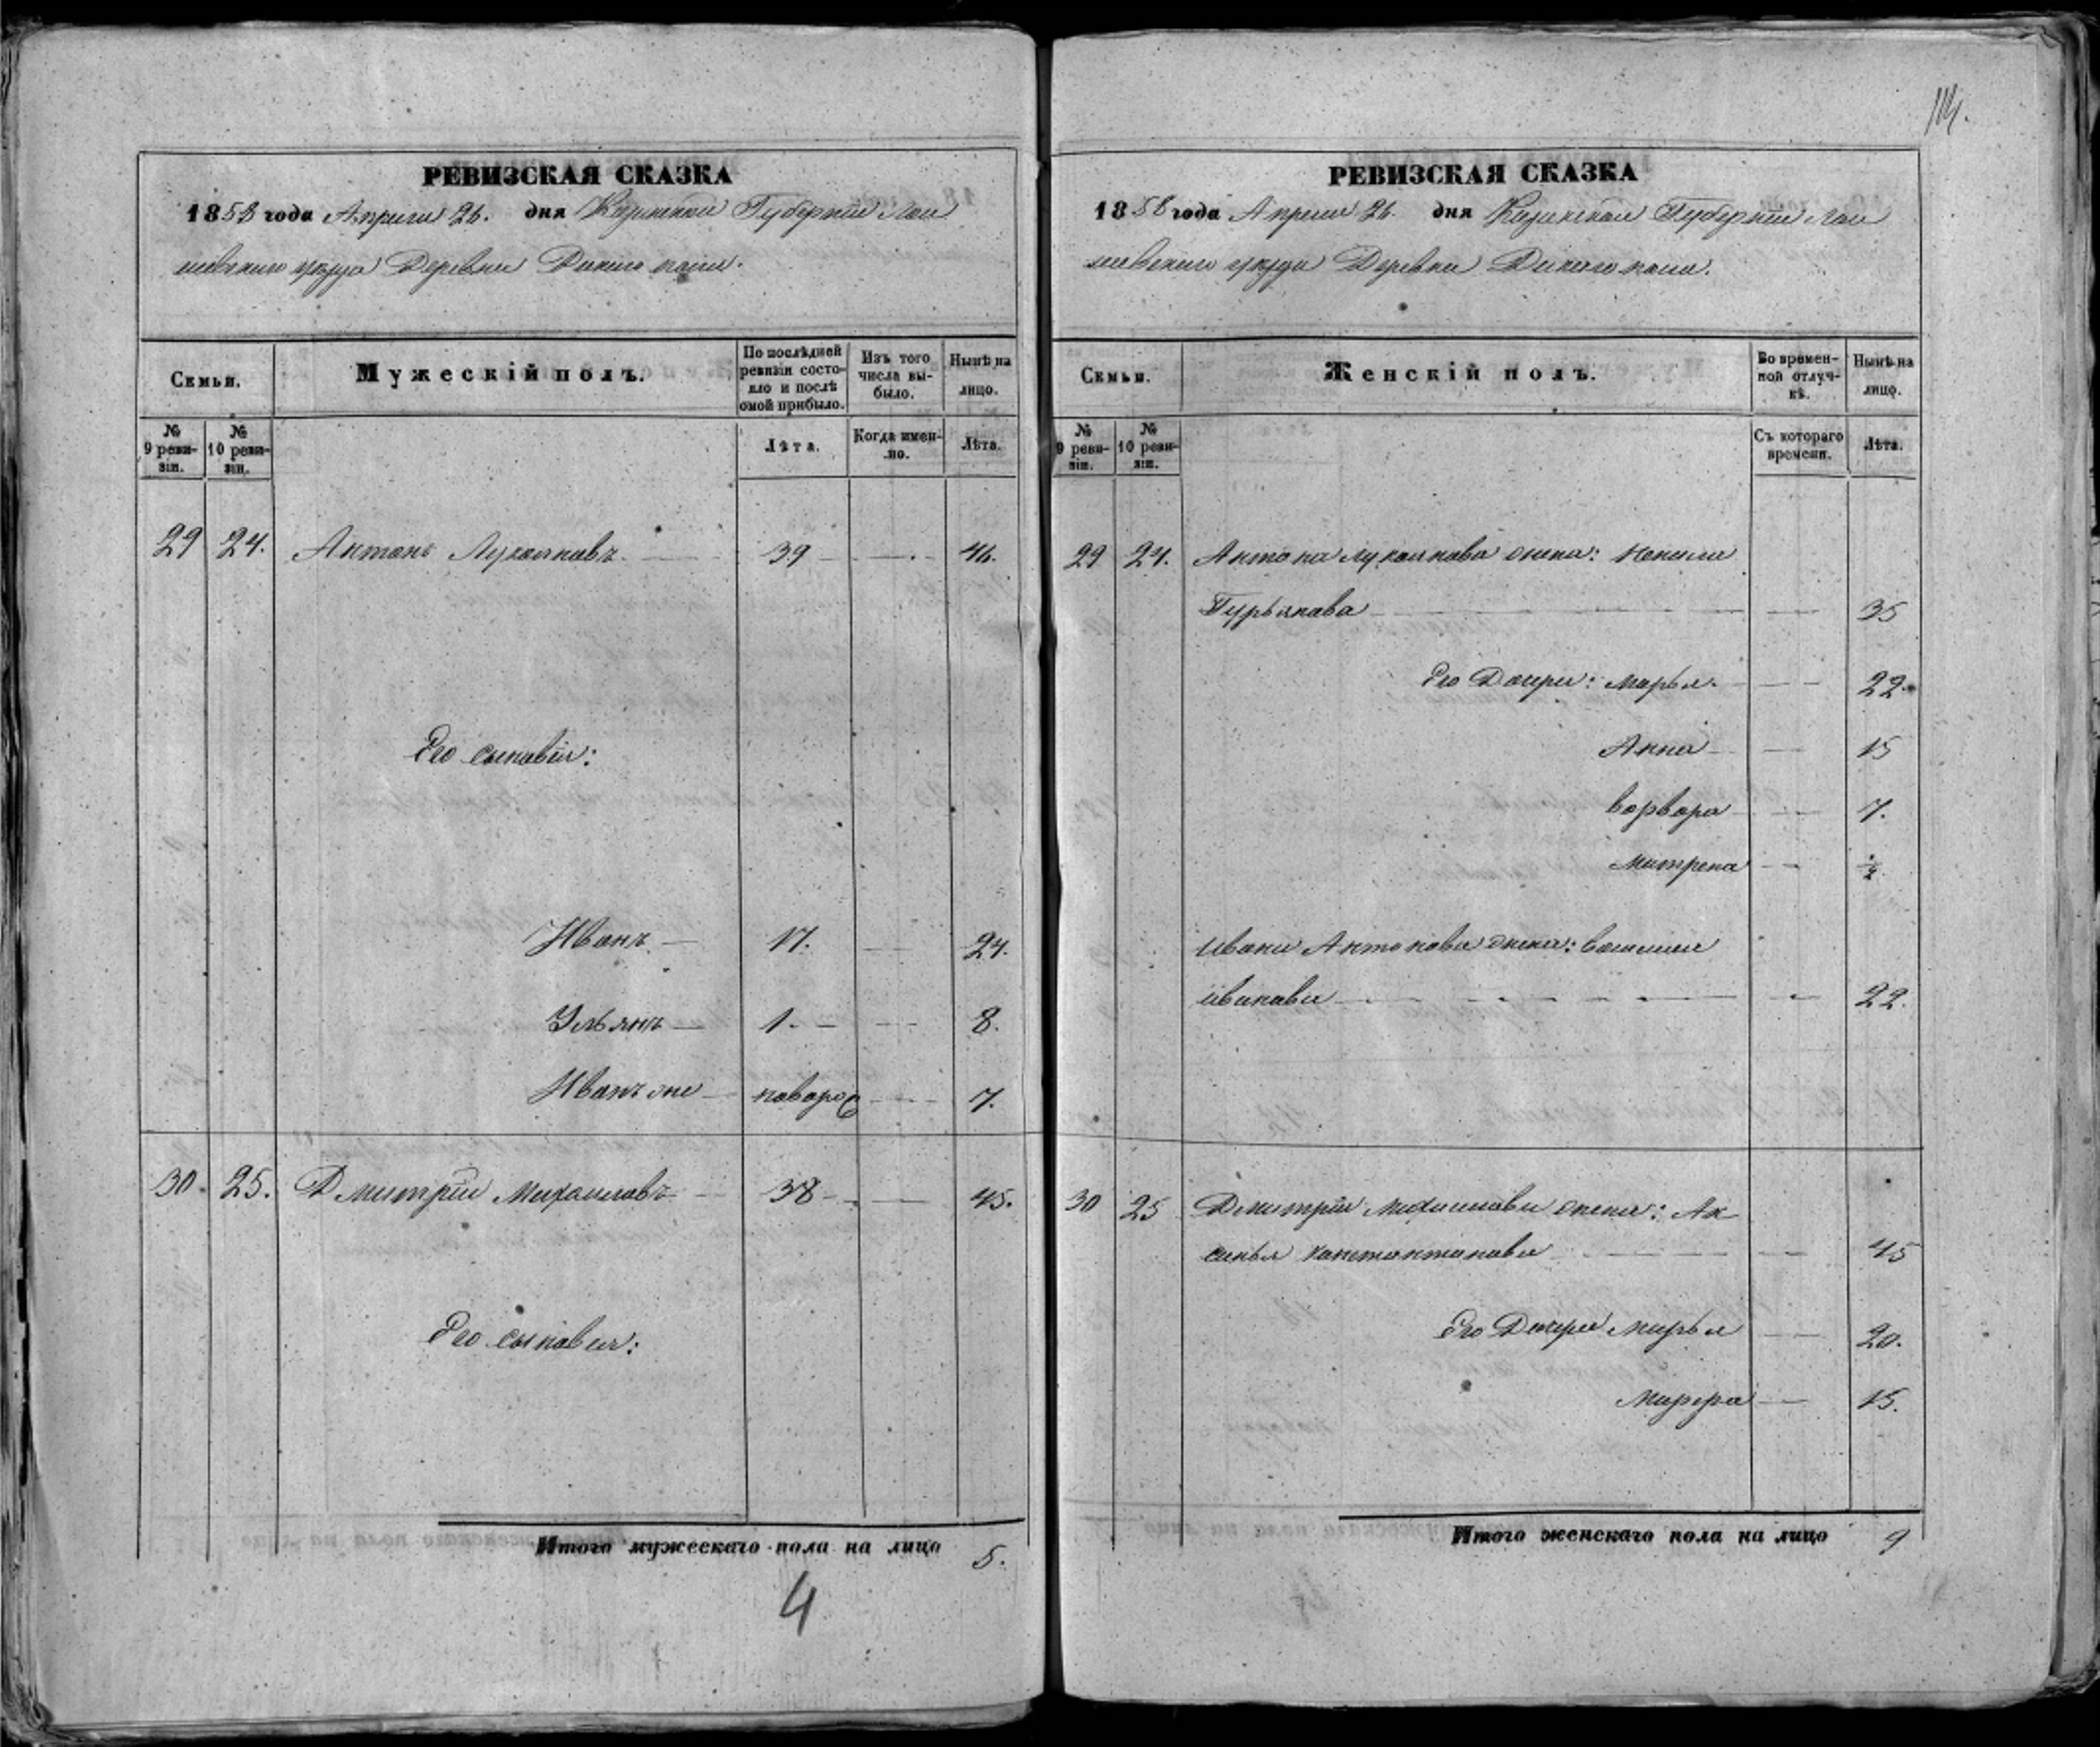 114.
РЕВИЗСКАЯ СКАЗКА
1858 года Апреля 26. дня Казанской Губерніи Лаи
шевского уезда Деревни Дикого поля.
Семьи.
Мужескій полъ.
По послѣдней ревизіи состояло и послѣ оной прибыло.
Изъ того числа выбыло.
Нынѣ на лицо.
№ 9 ревизіи.
№ 10 ревизіи.
Лѣта.
Когда именно.
Лѣта.
29 24. Антонъ Лукояновъ 39 46.
Его сыновія:
Иванъ 17. 24.
Ульянъ 1. 8.
Иванъ же новорож 7.
30. 25. Дмитрій Михаиловъ 38 45.
Его сыновья:
Итого мужескаго пола на лицо 5.
4
РЕВИЗСКАЯ СКАЗКА
1858 года Апреля 26. дня Казанской Губерніи Лаи
шевского уезда Деревни Дикого поля.
Семьи.
Женскій полъ.
Во временной отлучкѣ.
Нынѣ на лицо.
№ 9 ревизіи.
№ 10 ревизіи.
Съ котораго времени.
Лѣта.
29 24. Антона Лукоянова жена: Ненила
Гурьянова 35
Его Дочери: Марья. 22.
Анна 15
Ворвора 7.
Матрена
Ивана Антонова жена:
Иванова 22.
30 25 Дмитрія Михаилова жена: Ак
синья Констонтонова 45
Его Дочери Марья 20.
15.
Итого женскаго пола на лицо 9